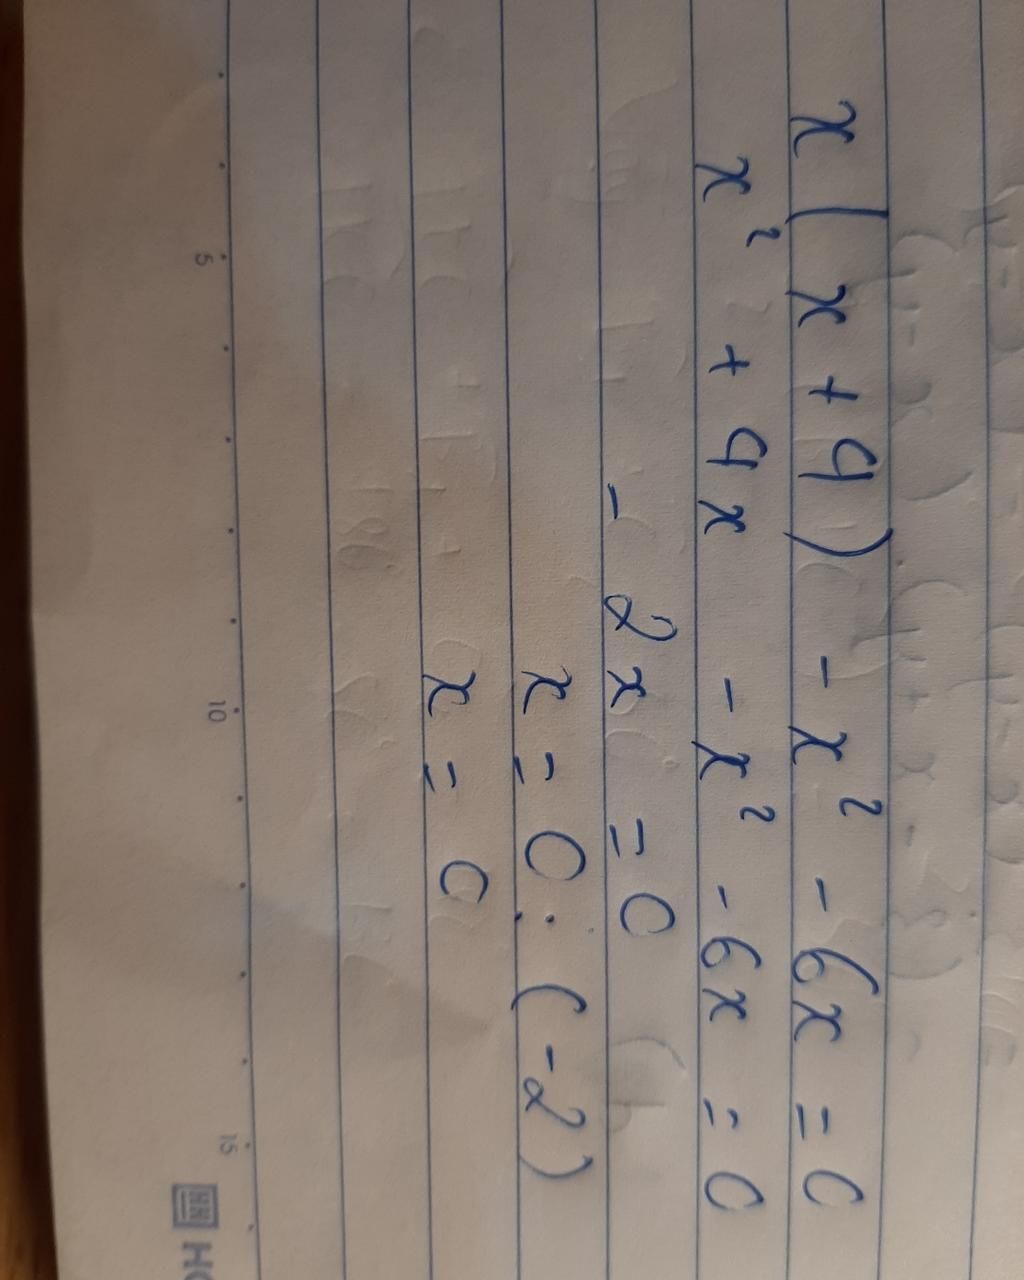 x(x+4) - x² - 6x = 0
x² + 4x - x² - 6x = 0
- 2x = 0
x = 0 : (-2)
x = 0
5 10 15